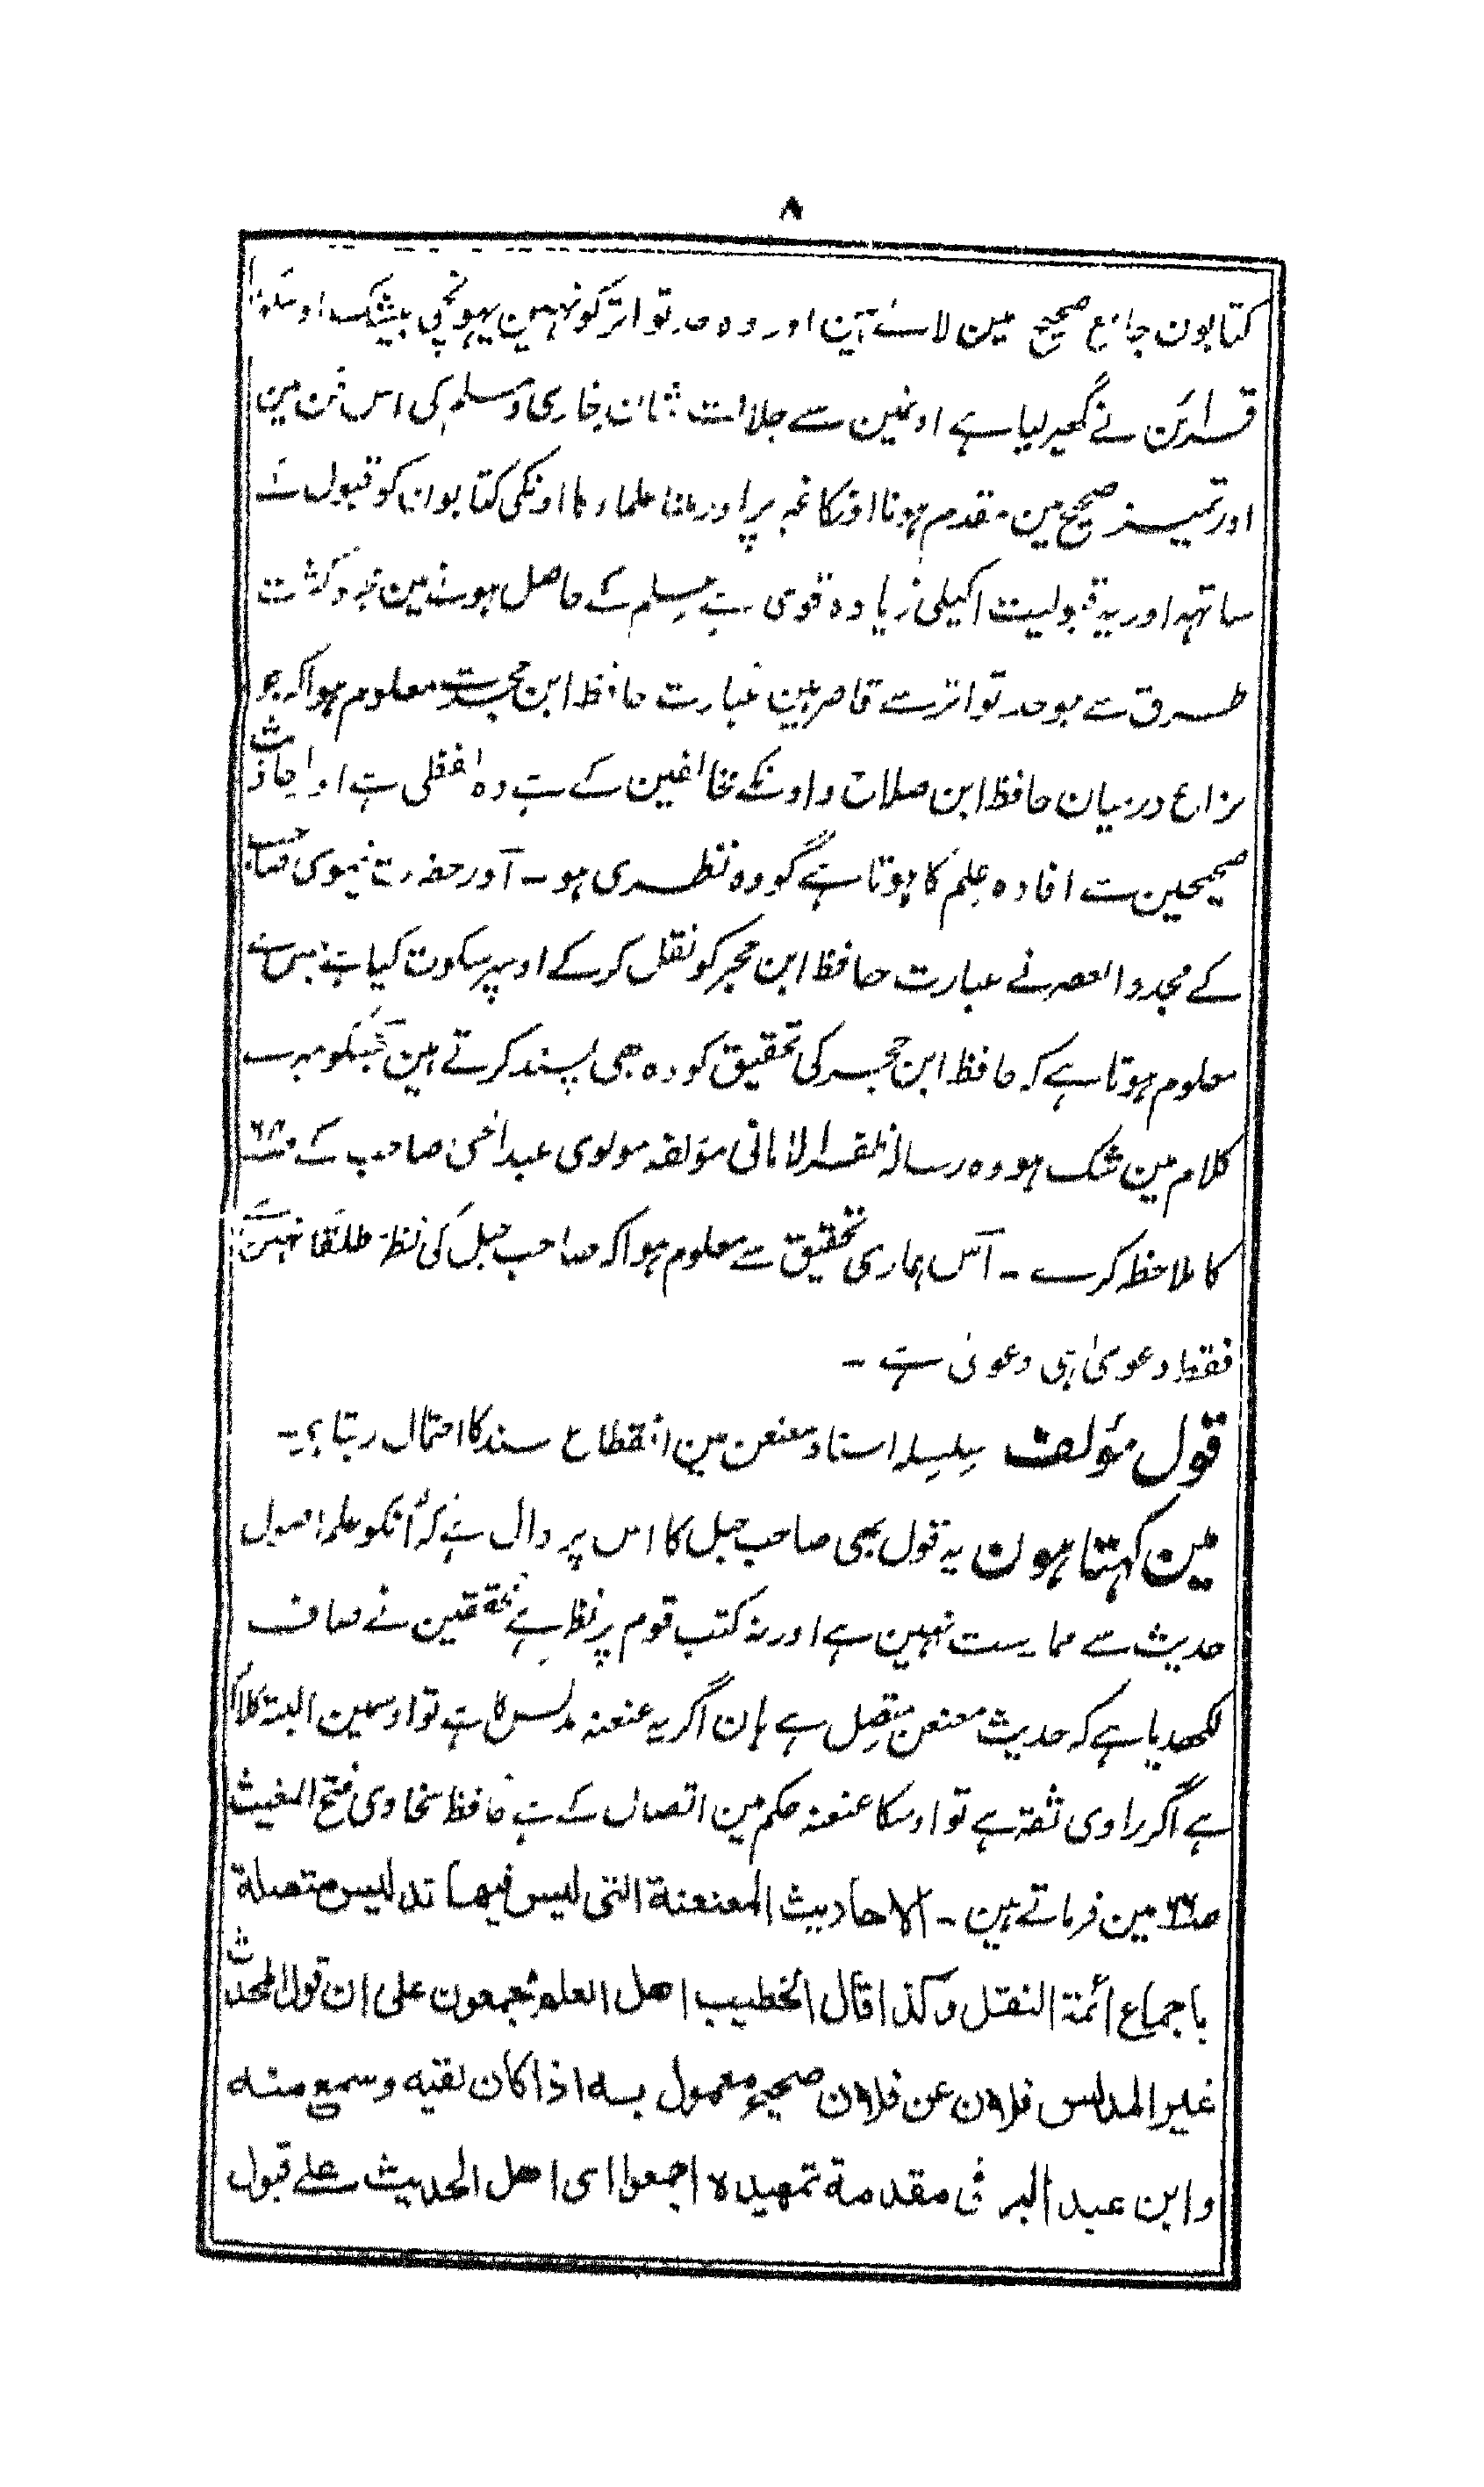 ۸
کتابون جامع صحیح مین لائے ہین اور وہ حد تواتر کو نہین پہونچی بیشک اوسکو
قرائن نے گھیر لیا ہے اونمین سے جلالت شان بخاری و مسلم کی اس فن مین
اور تمییز صحیح مین مقدم ہونا اونکا غیر پر اور ملنا علماء کا اونکی کتابون کو قبول کے
ساتھ اور یہ قبولیت اکیلی زیادہ قوی ہے علم کے حاصل ہونے مین مجرد کثرت
طرق سے جو حد تواتر سے قاصر ہین عبارت حافظ ابن حجر سے معلوم ہوا کہ جو
نزاع درمیان حافظ ابن صلاح و اونکے مخالفین کے ہے وہ لفظی ہے اور احادیث
صحیحین سے افادہ علم کا ہوتا ہے گو وہ نظری ہو۔ اور حضرت نیموی صاحب
کے مجدد العصر نے عبارت حافظ ابن حجر کو نقل کرکے اوسپر سکوت کیا ہے جس سے
معلوم ہوتا ہے کہ حافظ ابن حجر کی تحقیق کو وہ بھی پسند کرتے ہین جسکو میرے
کلام مین شک ہو وہ رسالہ ظفر الامانی مؤلفہ مولوی عبد الحی صاحب کے
کا ملاحظہ کرے۔ اس ہماری تحقیق سے معلوم ہوا کہ صاحب حبل کی نظر مطلقا نہین ہے
فقط دعویٰ ہی دعویٰ ہے۔
قول مؤلف سلسلہ اسناد معنعن مین انقطاع سند کا احتمال رہتا ہے۔
مین کہتا ہون یہ قول بھی صاحب حبل کا اس پر دال ہے کہ انکو علم اصول
حدیث سے ممارست نہین ہے اور نہ کتب قوم پر نظر ہے محققین نے صاف
لکھدیا ہے کہ حدیث معنعن متصل ہے ہان اگر یہ عنعنہ مدلس کا ہے تو اوسمین البتہ کلام
ہے اگر راوی ثقہ ہے تو اوسکا عنعنہ حکم مین اتصال کے ہے حافظ سخاوی فتح المغیث
صـ۶۶ مین فرماتے ہین۔ الاحادیث المعنعنة التی لیس فیھا تدلیس متصلة
باجماع أئمة النقل وکذا قال الخطیب اھل العلم مجمعون علی ان قول المحدث
غیر المدلس فلان عن فلان صحیح معمول به اذا کان لقیه وسمع منه
وابن عبد البر فی مقدمة تمھیده اجمعوا ای اھل الحدیث علی قبول